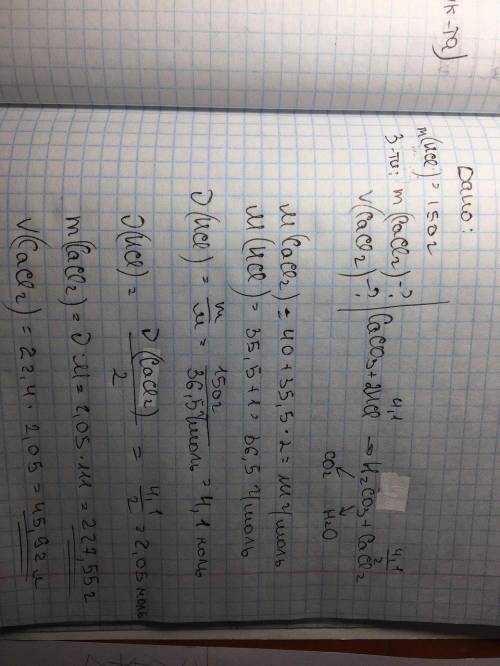 к-та)
Дано:
m(HCl) = 150г
З-ти: m(CaCl2)-?
V(CaCl2)-?
4,1 4,1/2
CaCO3 + 2HCl → H2CO3 + CaCl2
CO2 H2O
M(CaCl2) = 40 + 35,5 · 2 = 111 г/моль
M(HCl) = 35,5 + 1 = 36,5 г/моль
ν(HCl) = m/M = 150г/36,5 г/моль = 4,1 моль
ν(HCl) = ν(CaCl2)/2 = 4,1/2 = 2,05 моль
m(CaCl2) = ν · M = 2,05 · 111 = 227,55 г
V(CaCl2) = 22,4 · 2,05 = 45,92 л